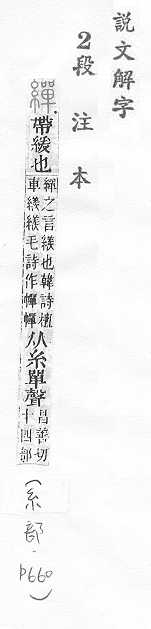 說文解字
2段注本
繟帶緩也
繟之言緩也韓詩檀
車 毛詩作幝幝
从糸單聲
昌善切
十四部
(糸部.p660)